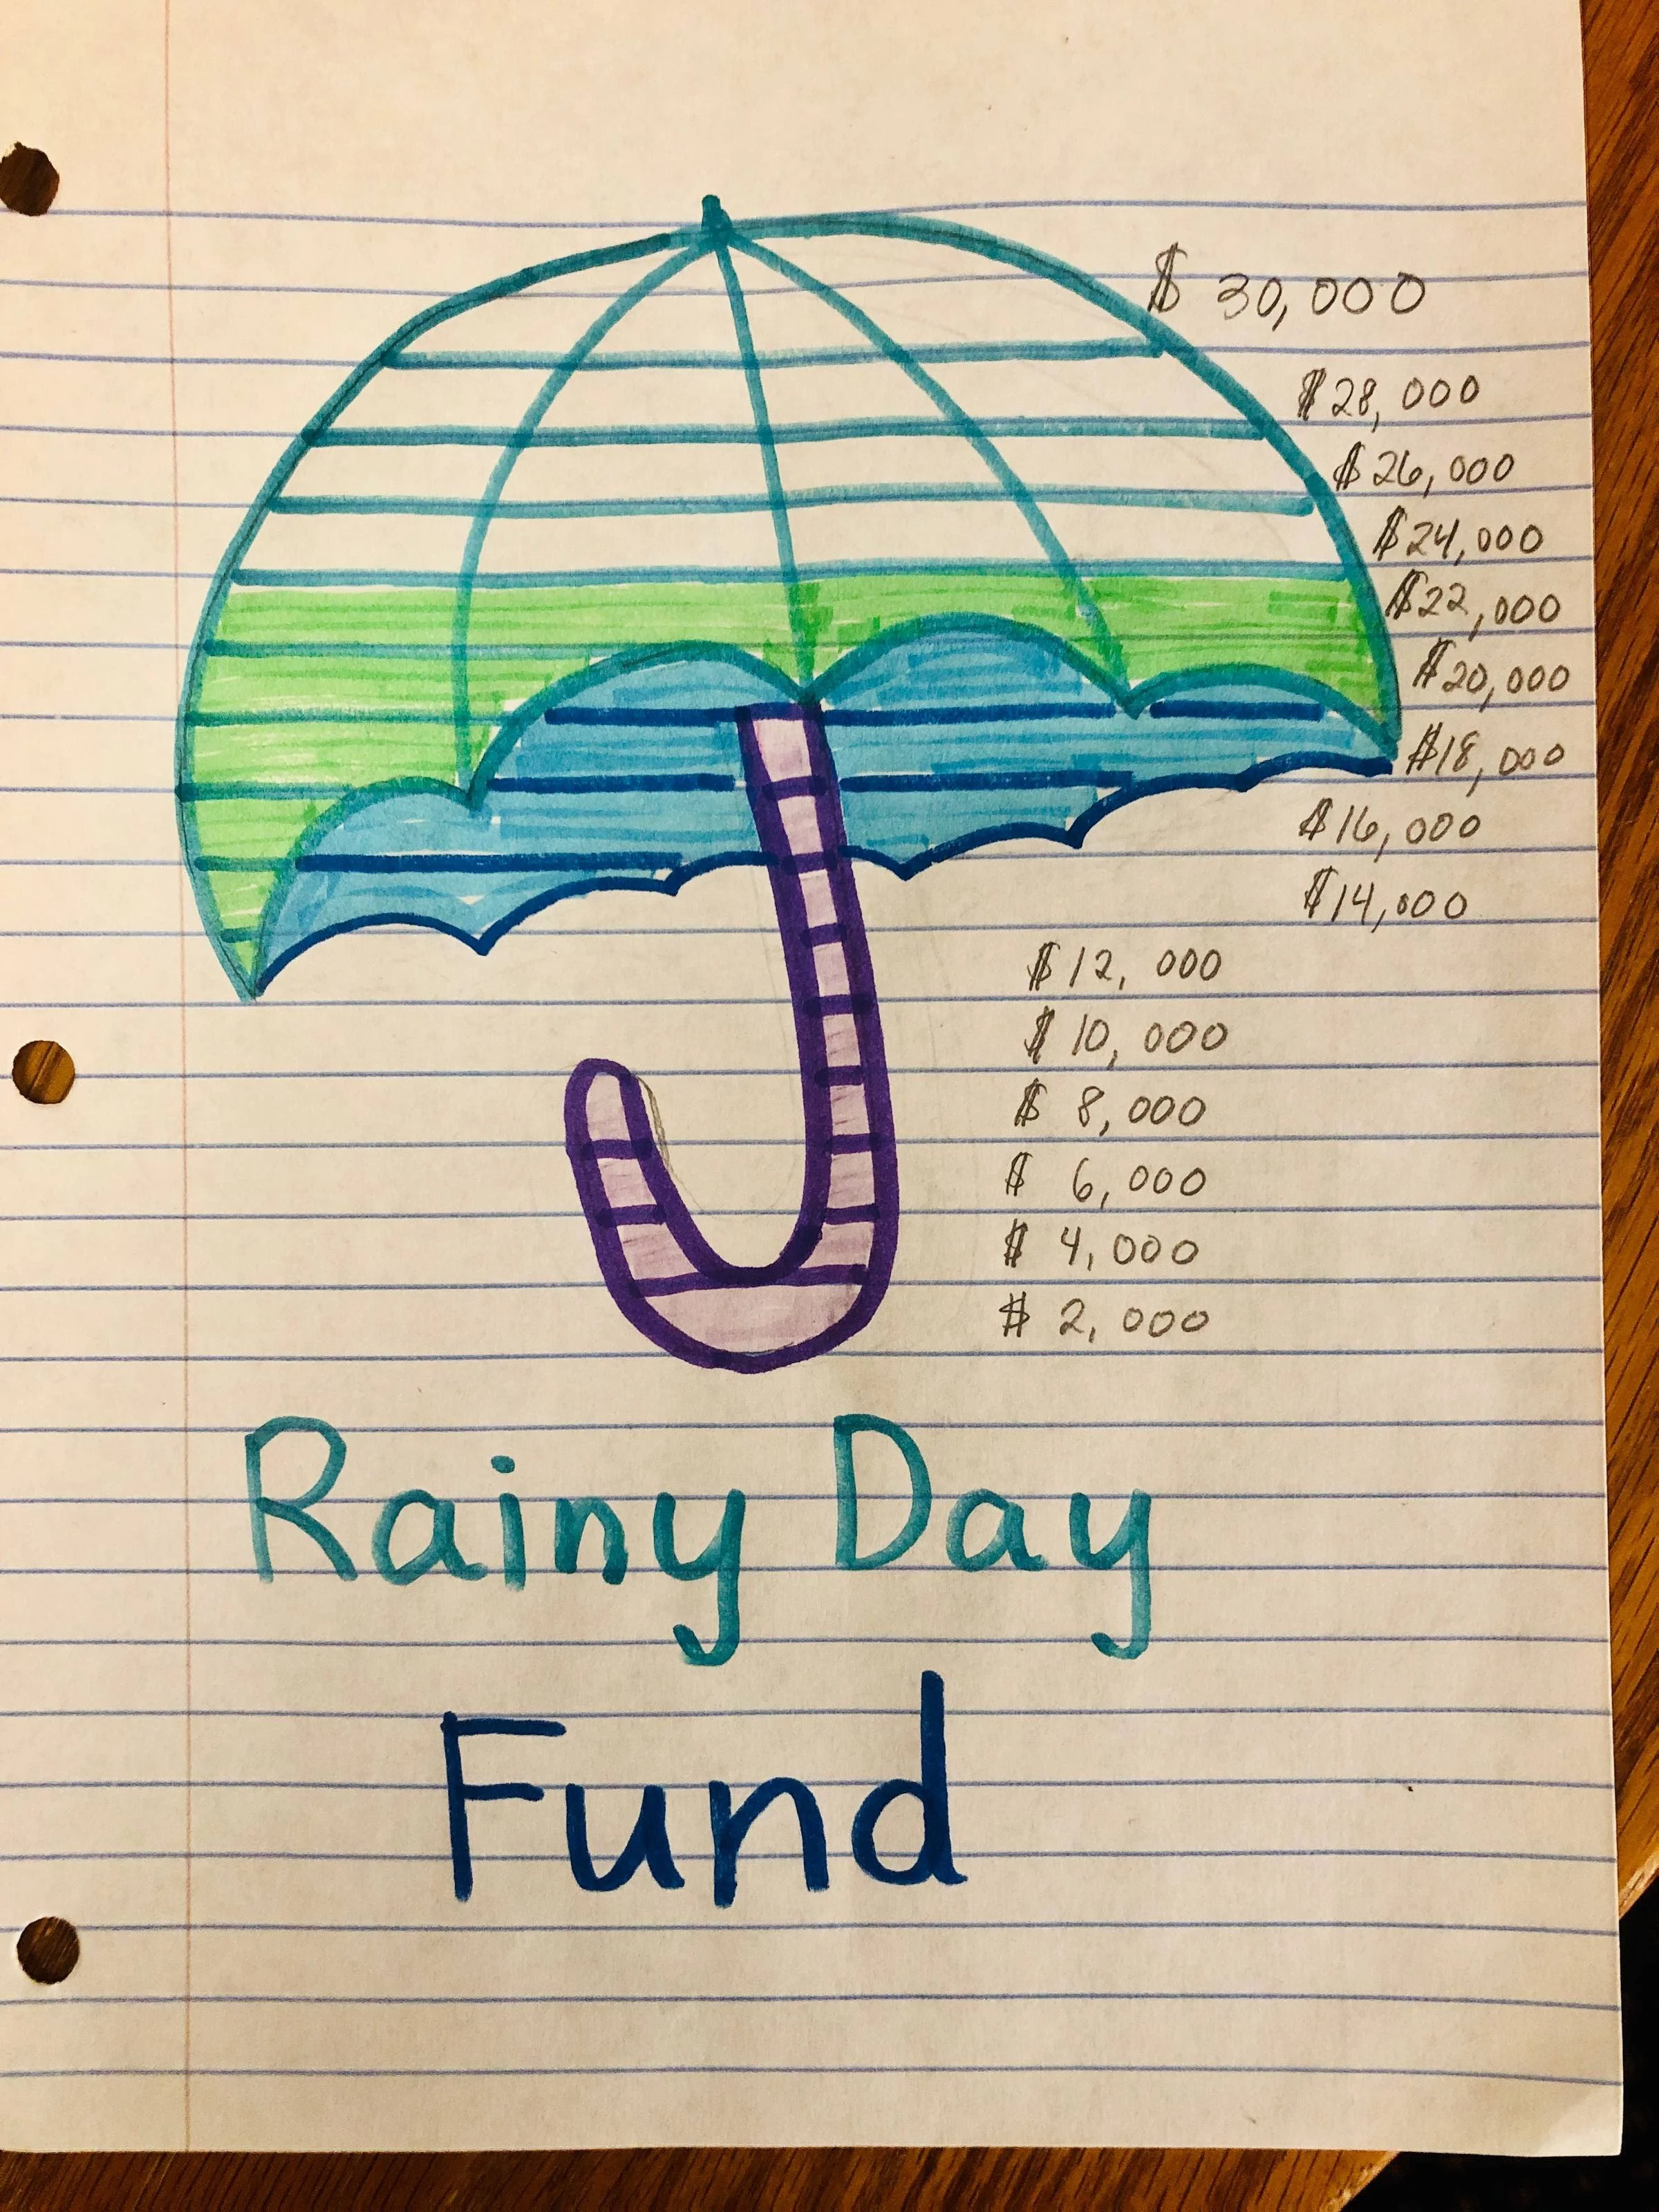 $ 30,000
$28,000
$26,000
$24,000
$22,000
$20,000
$18,000
$16,000
$14,000
$12,000
$10,000
$ 8,000
$ 6,000
$ 4,000
$ 2,000
Rainy Day
Fund